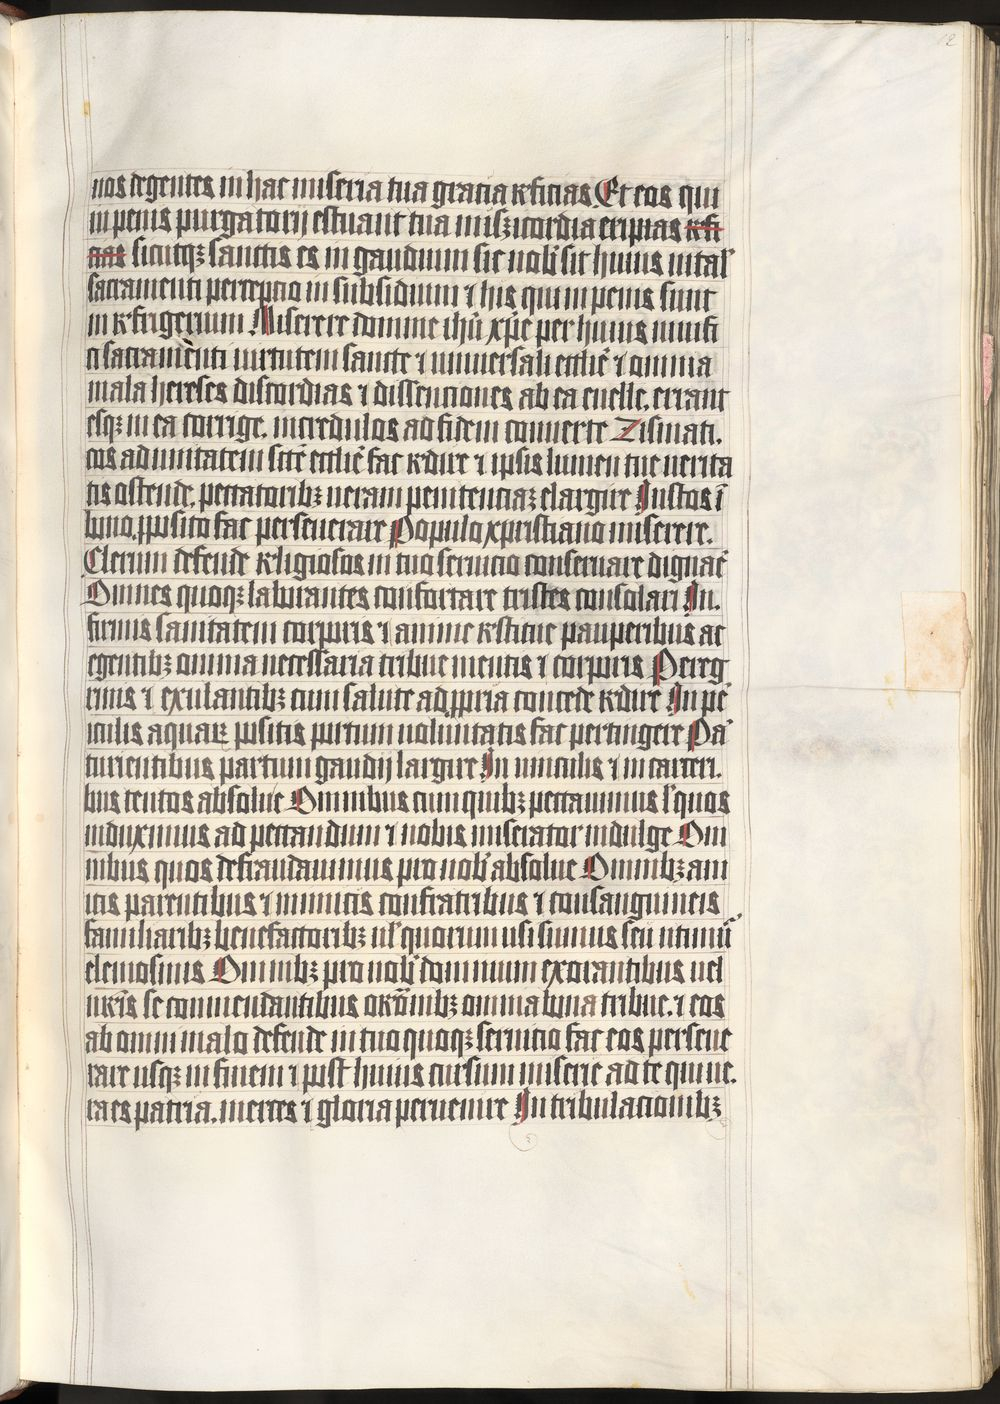 12
nos degentes in hac miseria tua gratia reficias Et eos qui
in penis purgatorij estuant tua misꝫicordia eripias refi
cias sicutqꝫ sanctis es in gaudium sic nob' sit huius uital'
sacramenti perceptio in subsidium ⁊ his qui in penis sunt
in refrigerium Miserere domine ihū xp̄e per huius munifi
ci sacramēnti uirtutem sancte ⁊ uniuersali eccliē ⁊ omnia
mala hereses discordias ⁊ dissenciones ab ea euelle. errant
esqꝫ in ea corrige. incredulos ad fidem conuerte Zismati.
cos ad unitatem sctē eccliē fac redire ⁊ ipsis lumen tue uerita
tis ostende. peccatoribꝫ ueram penitenciaꝫ elargire Iustos ī
bono ꝓposito fac perseuerare Populo xpristiano miserere.
Clerum defende religiosos in tuo seruicio conseruare dignar̄
Omnes quoqꝫ laborantes confortare tristes consolari In.
firmis sanitatem corporis ⁊ anime restitue pauperibus ac
egentibꝫ omnia necessaria tribue mentis ⁊ corporis Pereg
rinis ⁊ exulantibꝫ cum salute ad ꝓpria concede redire In pe'
riculis aquaꝝ positis portum uoluntatis fac pertingere Pa'
turientibus partum gaudij largire In uinculis ⁊ in carceri.
bus tentos absolue Omnibus cum quibꝫ peccauimus l' quos
induximus ad peccandum ⁊ nobis miserator indulge Om
nibus quos defraudauimus pro nob' absolue Omnibꝫ ami
icis parentibus ⁊ inimicis confratribus ⁊ consanguineis
familiaribꝫ benefactoribꝫ ul' quorum usi sumus seu utimur̄
elemosinis Omnibꝫ pro nob' dominum exorantibus uel
nr̄is se commendantibus or̄onibꝫ omnia bona tribue. ⁊ eos
ab omni malo defende in tuo quoqꝫ seruicio fac eos perseue
rare usqꝫ in finem ⁊ post huius cursum miserie ad te qui ue.
ra es patria. merces ⁊ gloria peruenire In tribulacionibꝫ